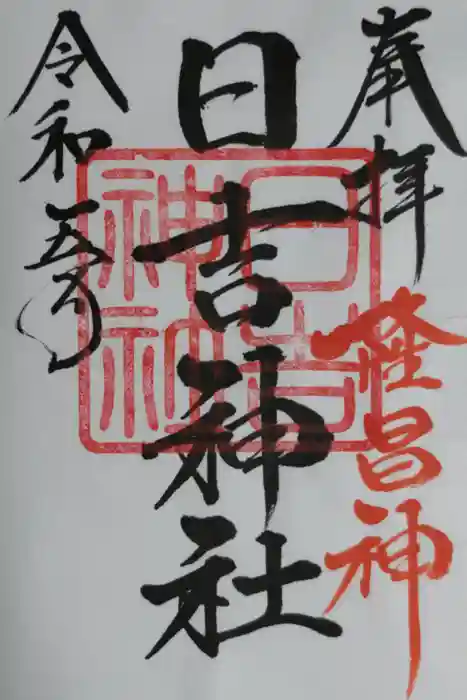 奉拝
昌神
日吉神社
日吉
神社
令和五